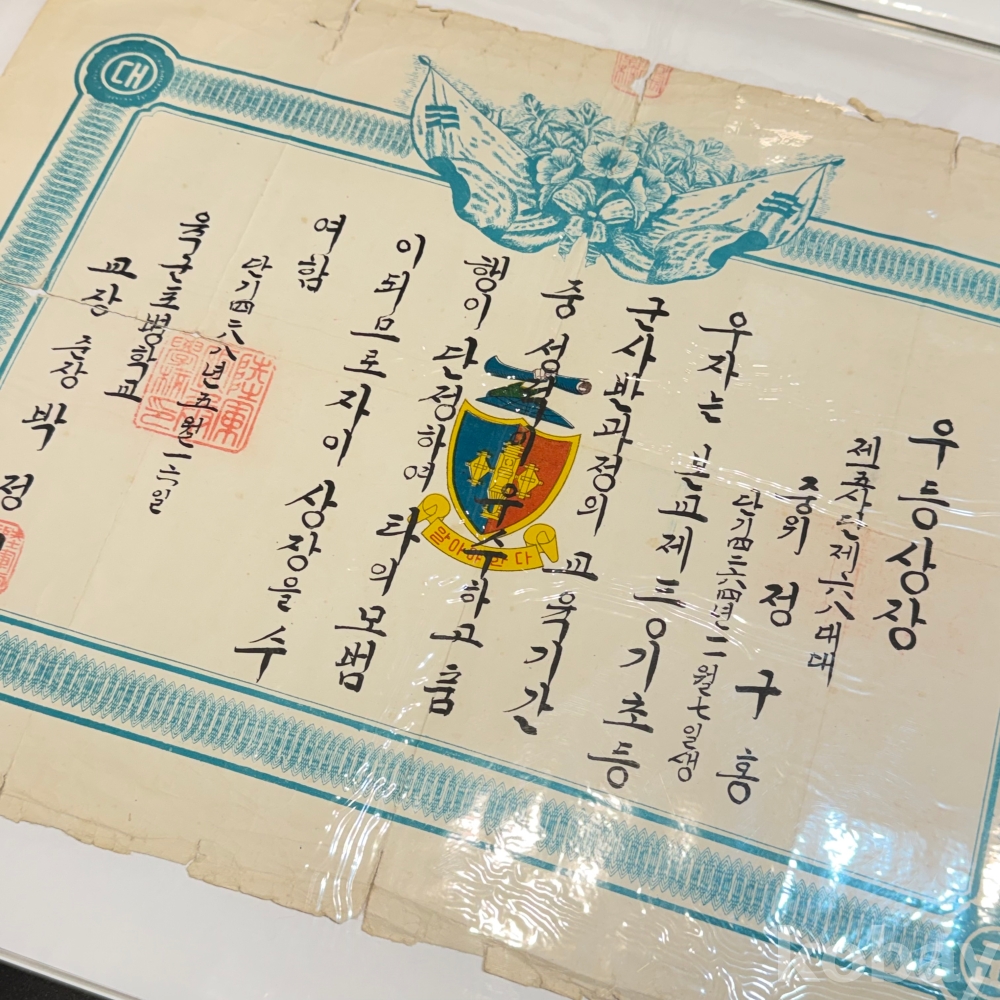 대
우등상장
제五사단제六八대대
중위 정구홍
단기四二六四년二월七일생
우자는 본교제三〇기초등
군사반과정의 교육기간
중 성적이우수하고 품
행이 단정하여 타의 모범
이되므로 자이 상장을 수
여함
단기四二八八년五월
육군포병학교
교장 준장 박 정
알아야 한다